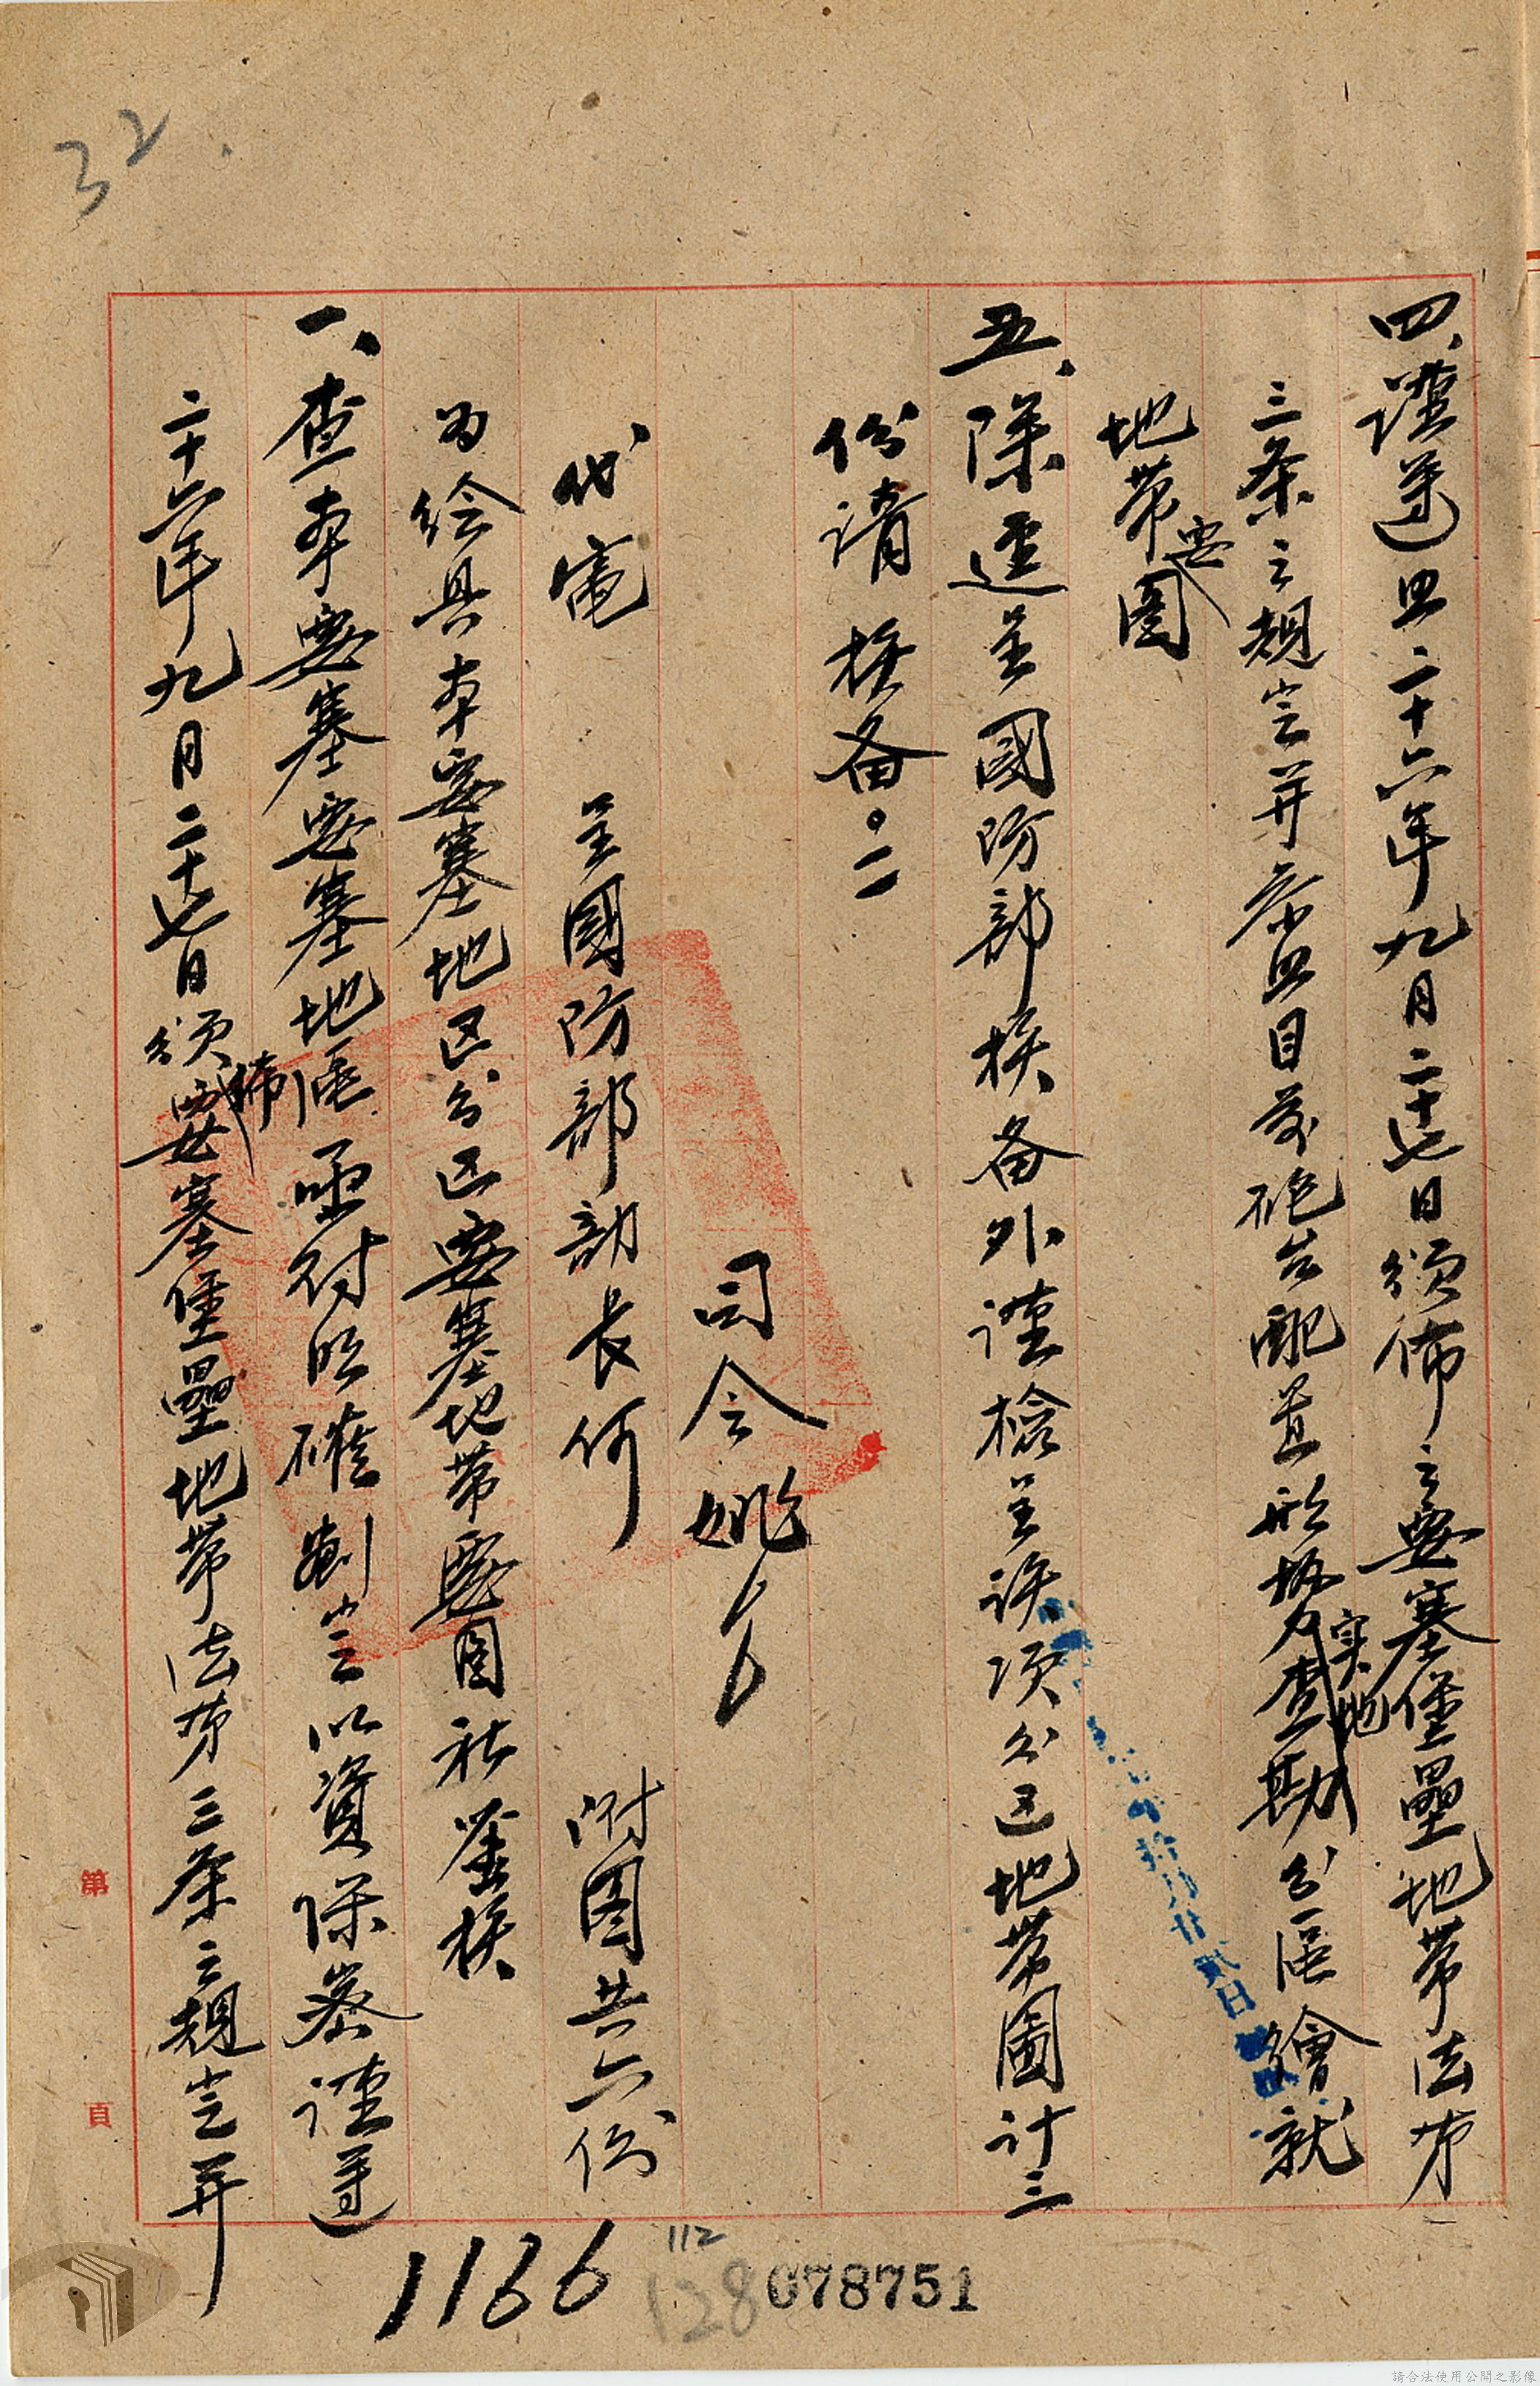 32.
四、謹遵照二十六年九月二十七日頒佈之要塞堡壘地帶法第
三条之規定并參照目前砲台配置形势实地查勘分區繪就
地帶要图
五、除逕呈國防部核备外謹檢呈該項分区地帶圖计三
份请核备。二
司令姚
代電 呈國防部部長何 附图共六份
为绘具本要塞地区分区要塞地帶要图祈鉴核
一、查本要塞要塞地區亟待明確劃定以資保密謹遵
二十六年九月二十七日頒佈要塞堡壘地帶法第三条之規定并
第 頁
拾月廿貳日
1166
112
128
078751
請合法使用公開之影像